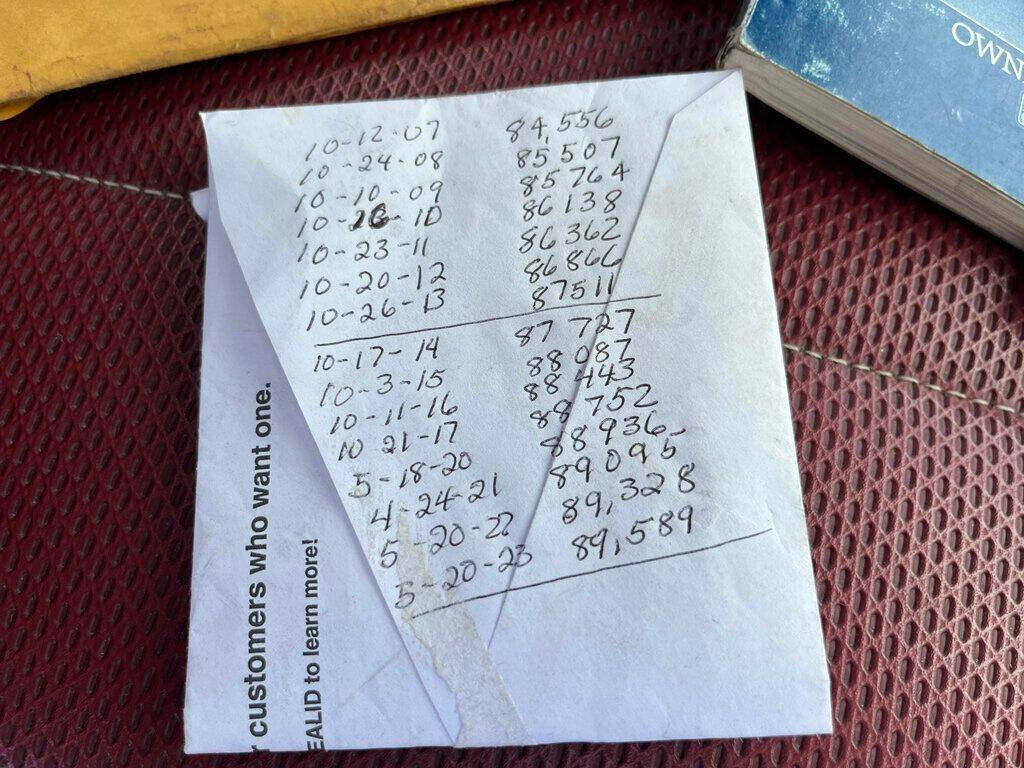 10-12-07 84,556
10-24-08 85507
10-10-09 85764
86138
10-23-11 86362
10-20-12 86866
10-26-13 87511
10-17-14 87727
10-3-15 88087
10-11-16 88443
10 21-17 88752
5-18-20 88936
4-24-21 89095
5-20-22 89,328
5-20-23 89,589
customers who want one.
EALID to learn more!
OWN